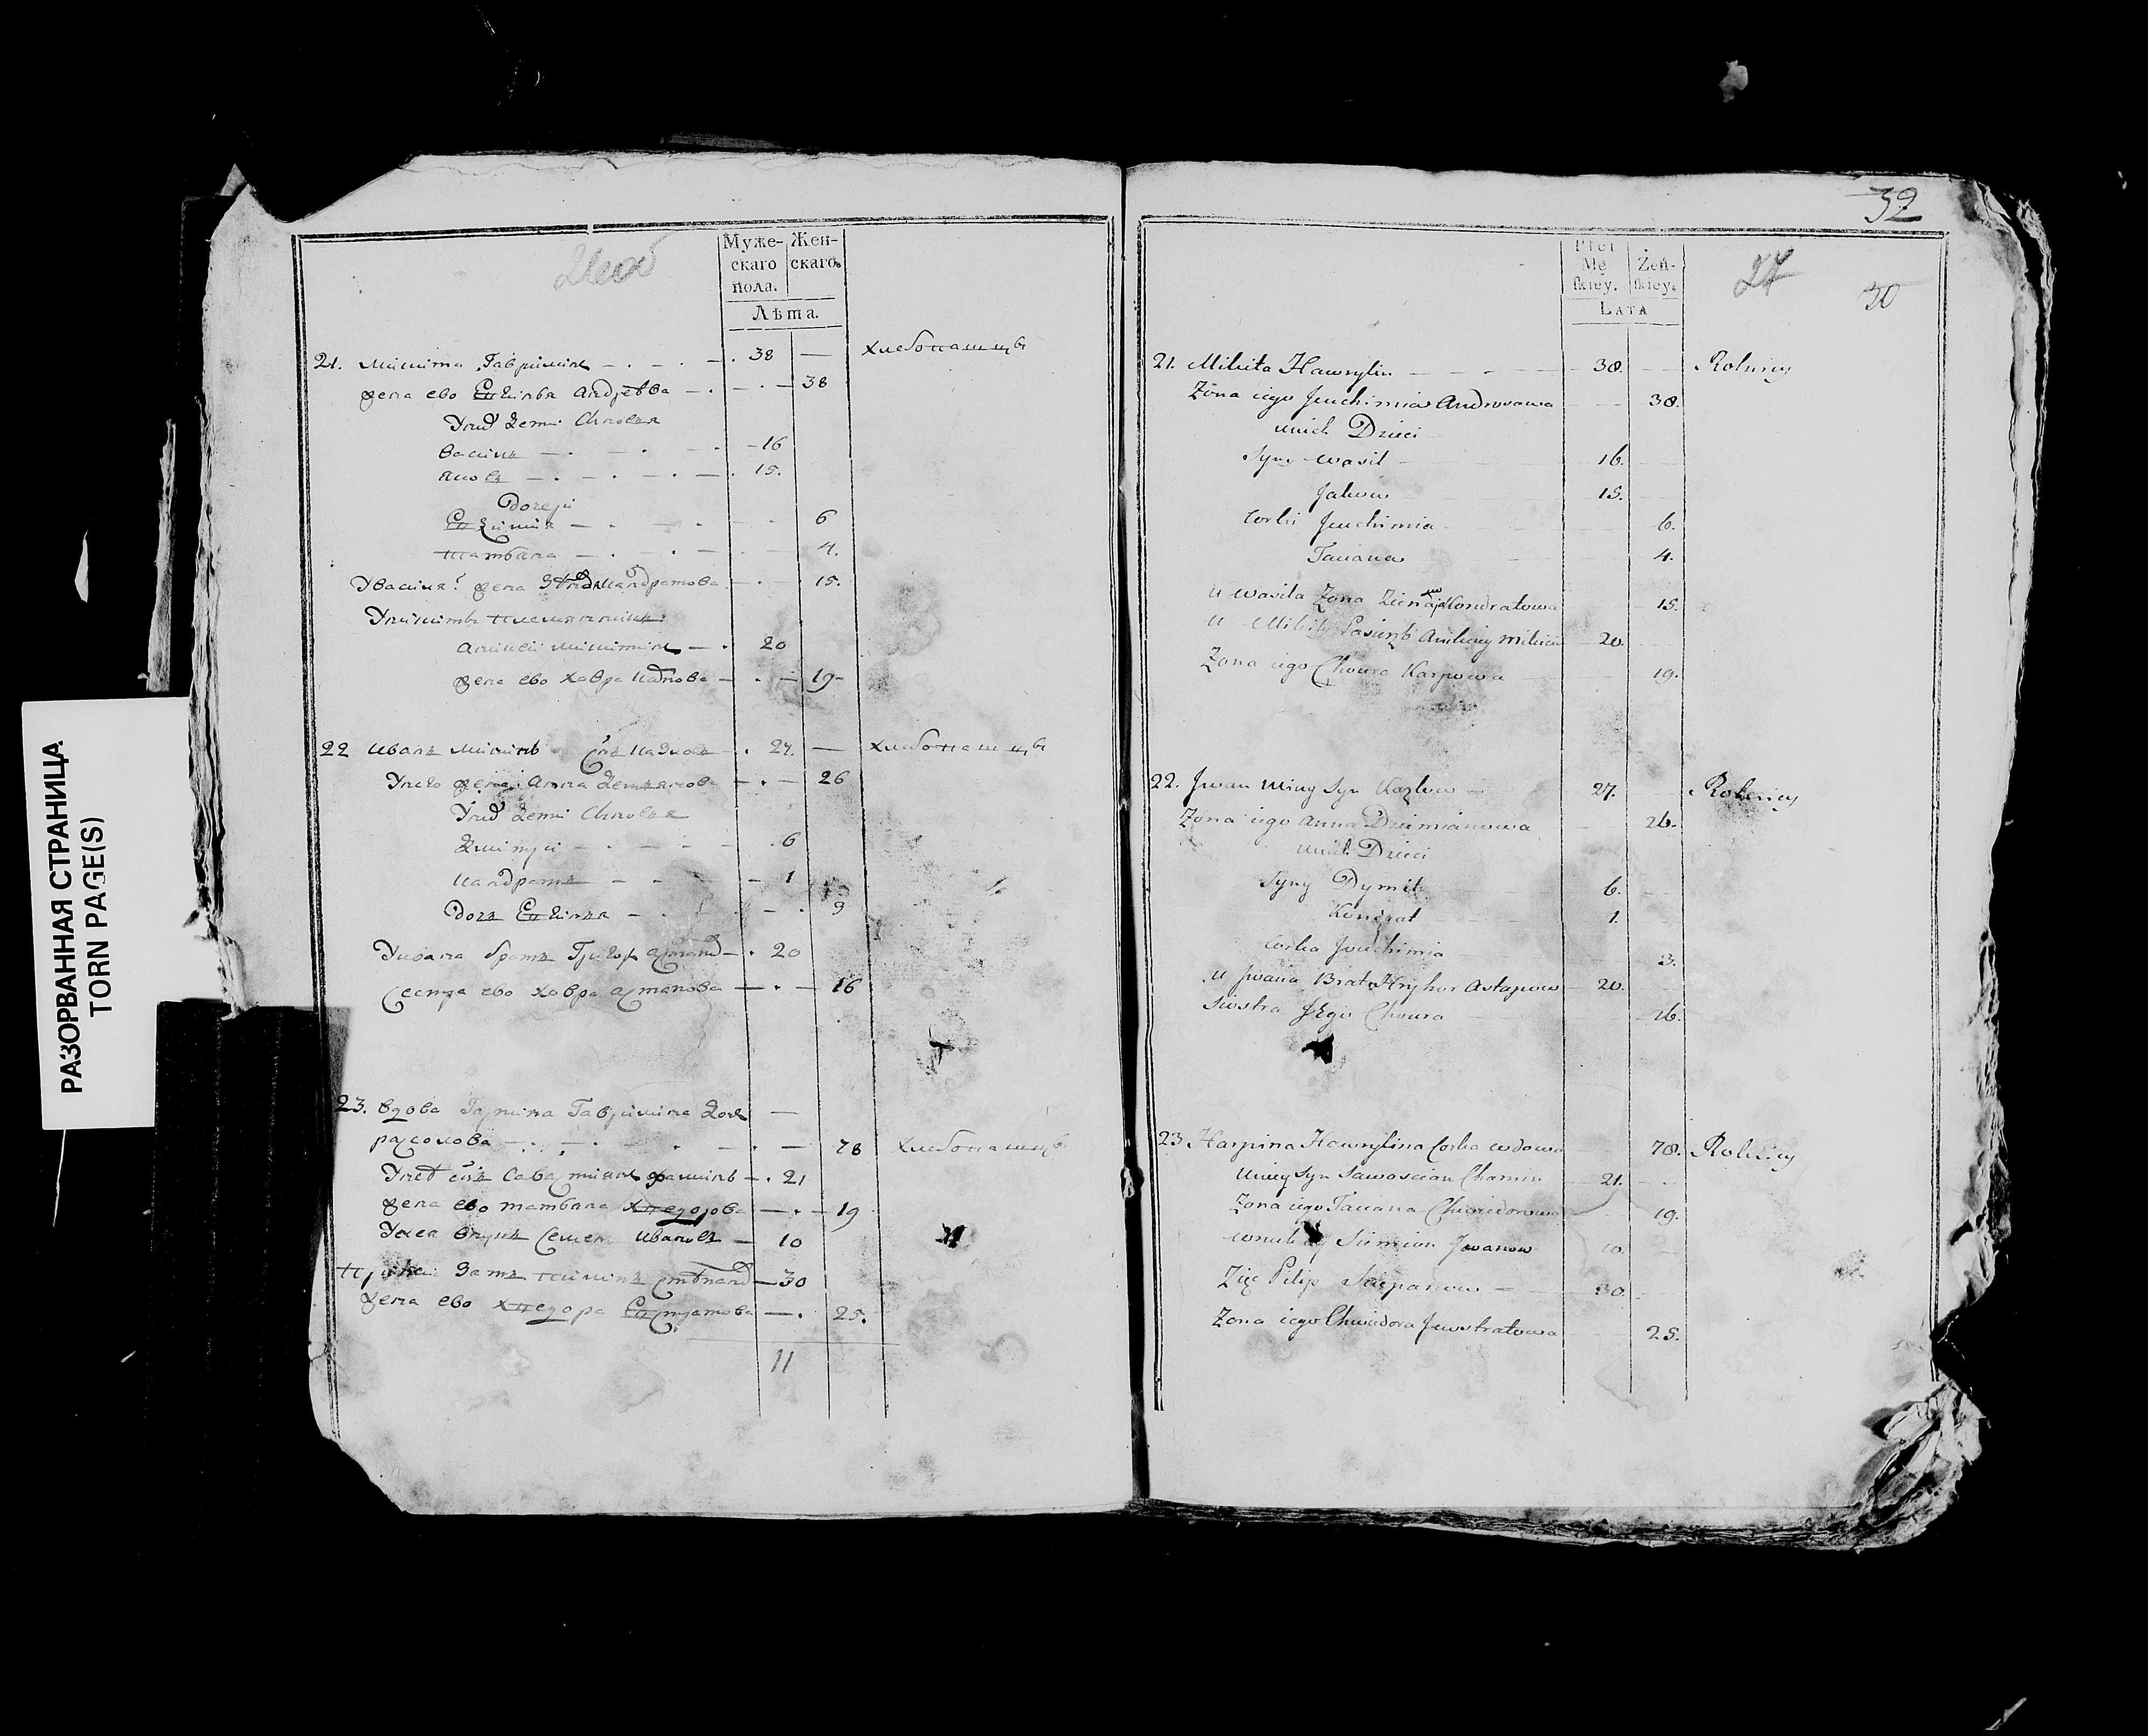 РАЗОРВАННАЯ СТРАНИЦА
TORN PAGE(S)
Муже- Жен-
скаго скаго.
пола.
Лѣта.
21. Микита Гаврилинъ 38 — хлебопашцы
жена ево Андреева 38
дети Сыновья
Василь 16
Яковъ 15.
Дочери
6
Татьяна 4.
Увасиля жена Кандратова 15.
Умикиты племянникъ
Микитинъ 20
жена ево Хавра 19
22 Иванъ сынъ Казловъ 27. — хлебопашцы
Унего жена Анна Демьянова 26
дети Сыновья
Дмитри 6
Кандратъ 1
Дочь 3
Уивана братъ Григор Астапов 20
Сестра ево Хавра Астапова 16
23. Вдова Гарпина Гаврилина Дочь —
78 хлебопашцы
сынъ 21
жена ево татьяна Хведорова 19
внукъ Семенъ Ивановъ 10
Зять Пилипъ Степанов 30
жена ево Хведора 25.
11
32
Płci
Mę- Żeń-
ſkiey. ſkiey.
Lata
27
30
21. Mikita Hawrylin 38. Rolnicy
Zona iego Jeuchimia Androsowa 38.
unich Dzieci
Syny Wasil 16.
Jakow 15.
Corki Jeuchimia 6.
Taciana 4.
u Wasila Zona Kondratowa 15.
u Mikity Pasierzb 20.
Zona iego Choura Karpowa 19.
22. Jwan Syn Kazlow 27. Rolnicy
Zona iego Anna Dziemianowa 26.
unich Dzieci
Syny Dymitr 6.
Kondrat 1.
Corka Jeuchimia 3.
u Jwana Brat Hryhor Astapow 20.
Siostra Jego Choura 16.
23 Harpina Hawrylina Corka wdowa 78. Rolnicy
uniey Syn Sawoscian 21.
Zona iego Taciana Chwiedorowa 19.
Siemion Jwanow 10.
Zięć Pilip Sciepanow 30.
Zona iego Chwiedora Jewstratowa 25.